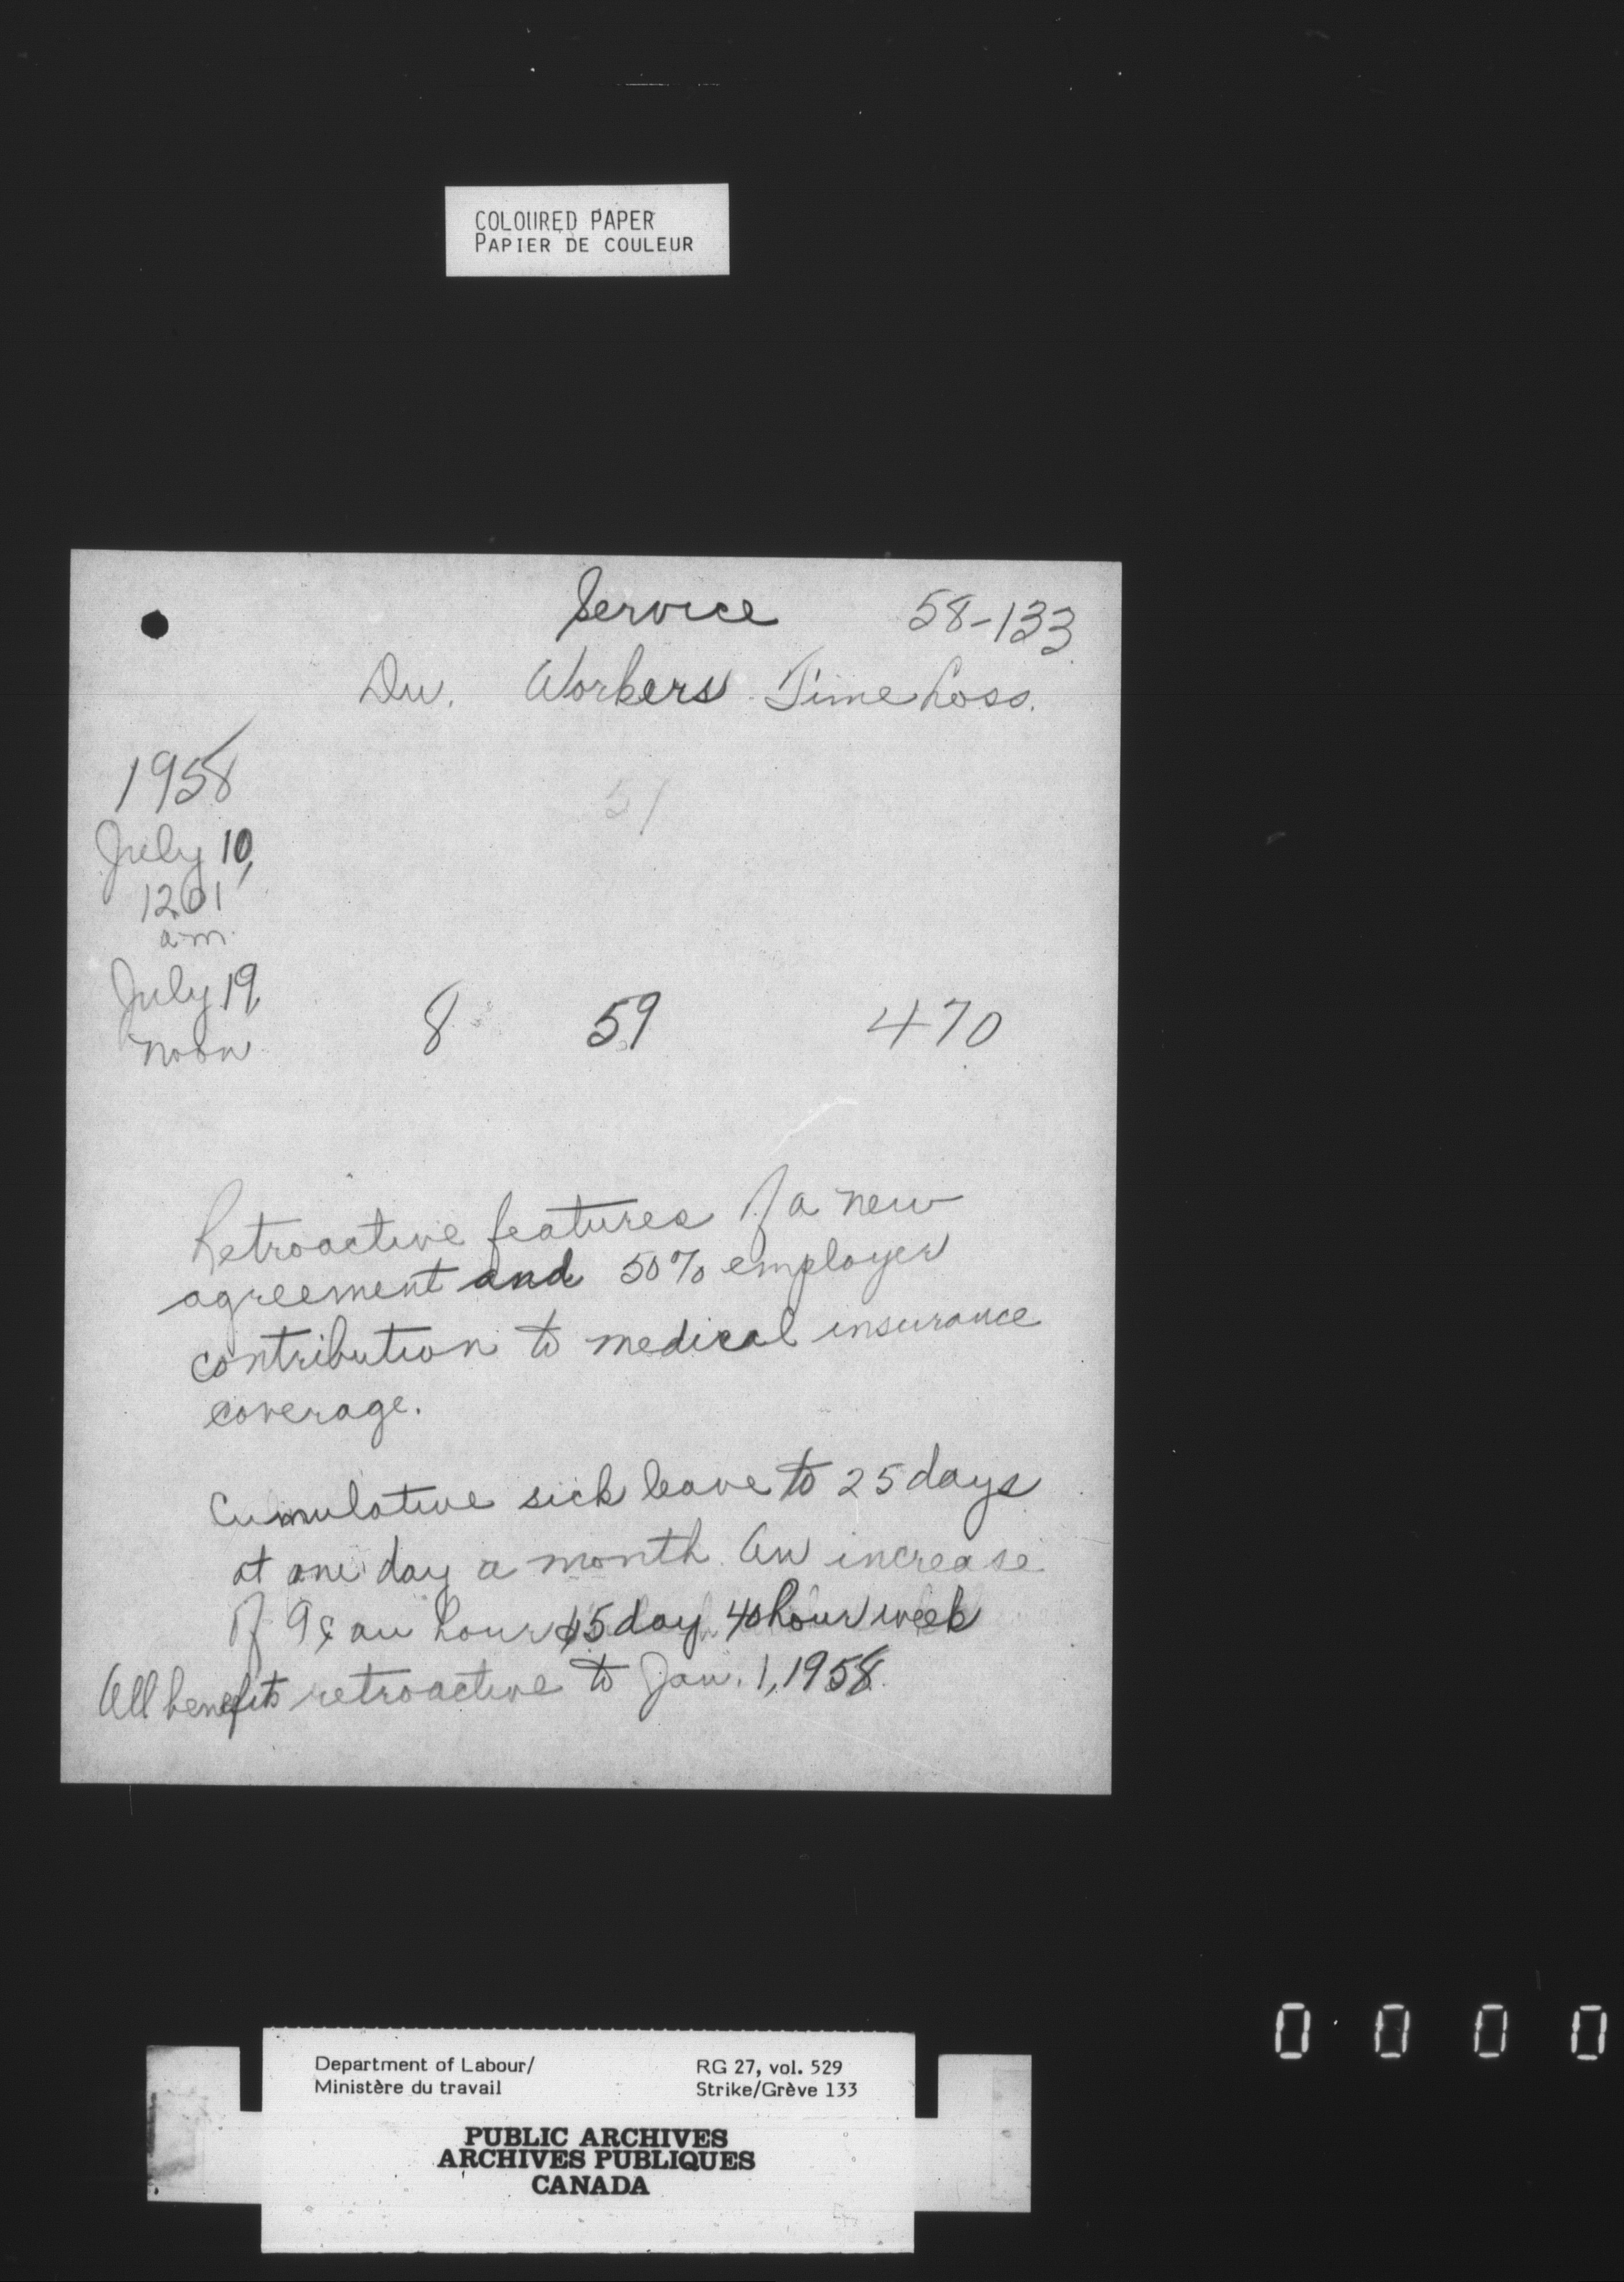 COLOURED PAPER
PAPIER DE COULEUR
Service 58-133
Du. Workers Time Loss.
1958
51
July 10,
1201
a.m.
July 19,
noon 8 59 470
Retroactive features of a new
agreement and 50% employer
contribution to medical insurance
coverage.
Cumulative sick leave to 25 days
at one day a month. An increase
of 9¢ an hour 5 day 40 hour week
All benefits retroactive to Jan. 1, 1958.
0 0 0 0
Department of Labour/ RG 27, vol. 529
Ministère du travail Strike/Grève 133
PUBLIC ARCHIVES
ARCHIVES PUBLIQUES
CANADA